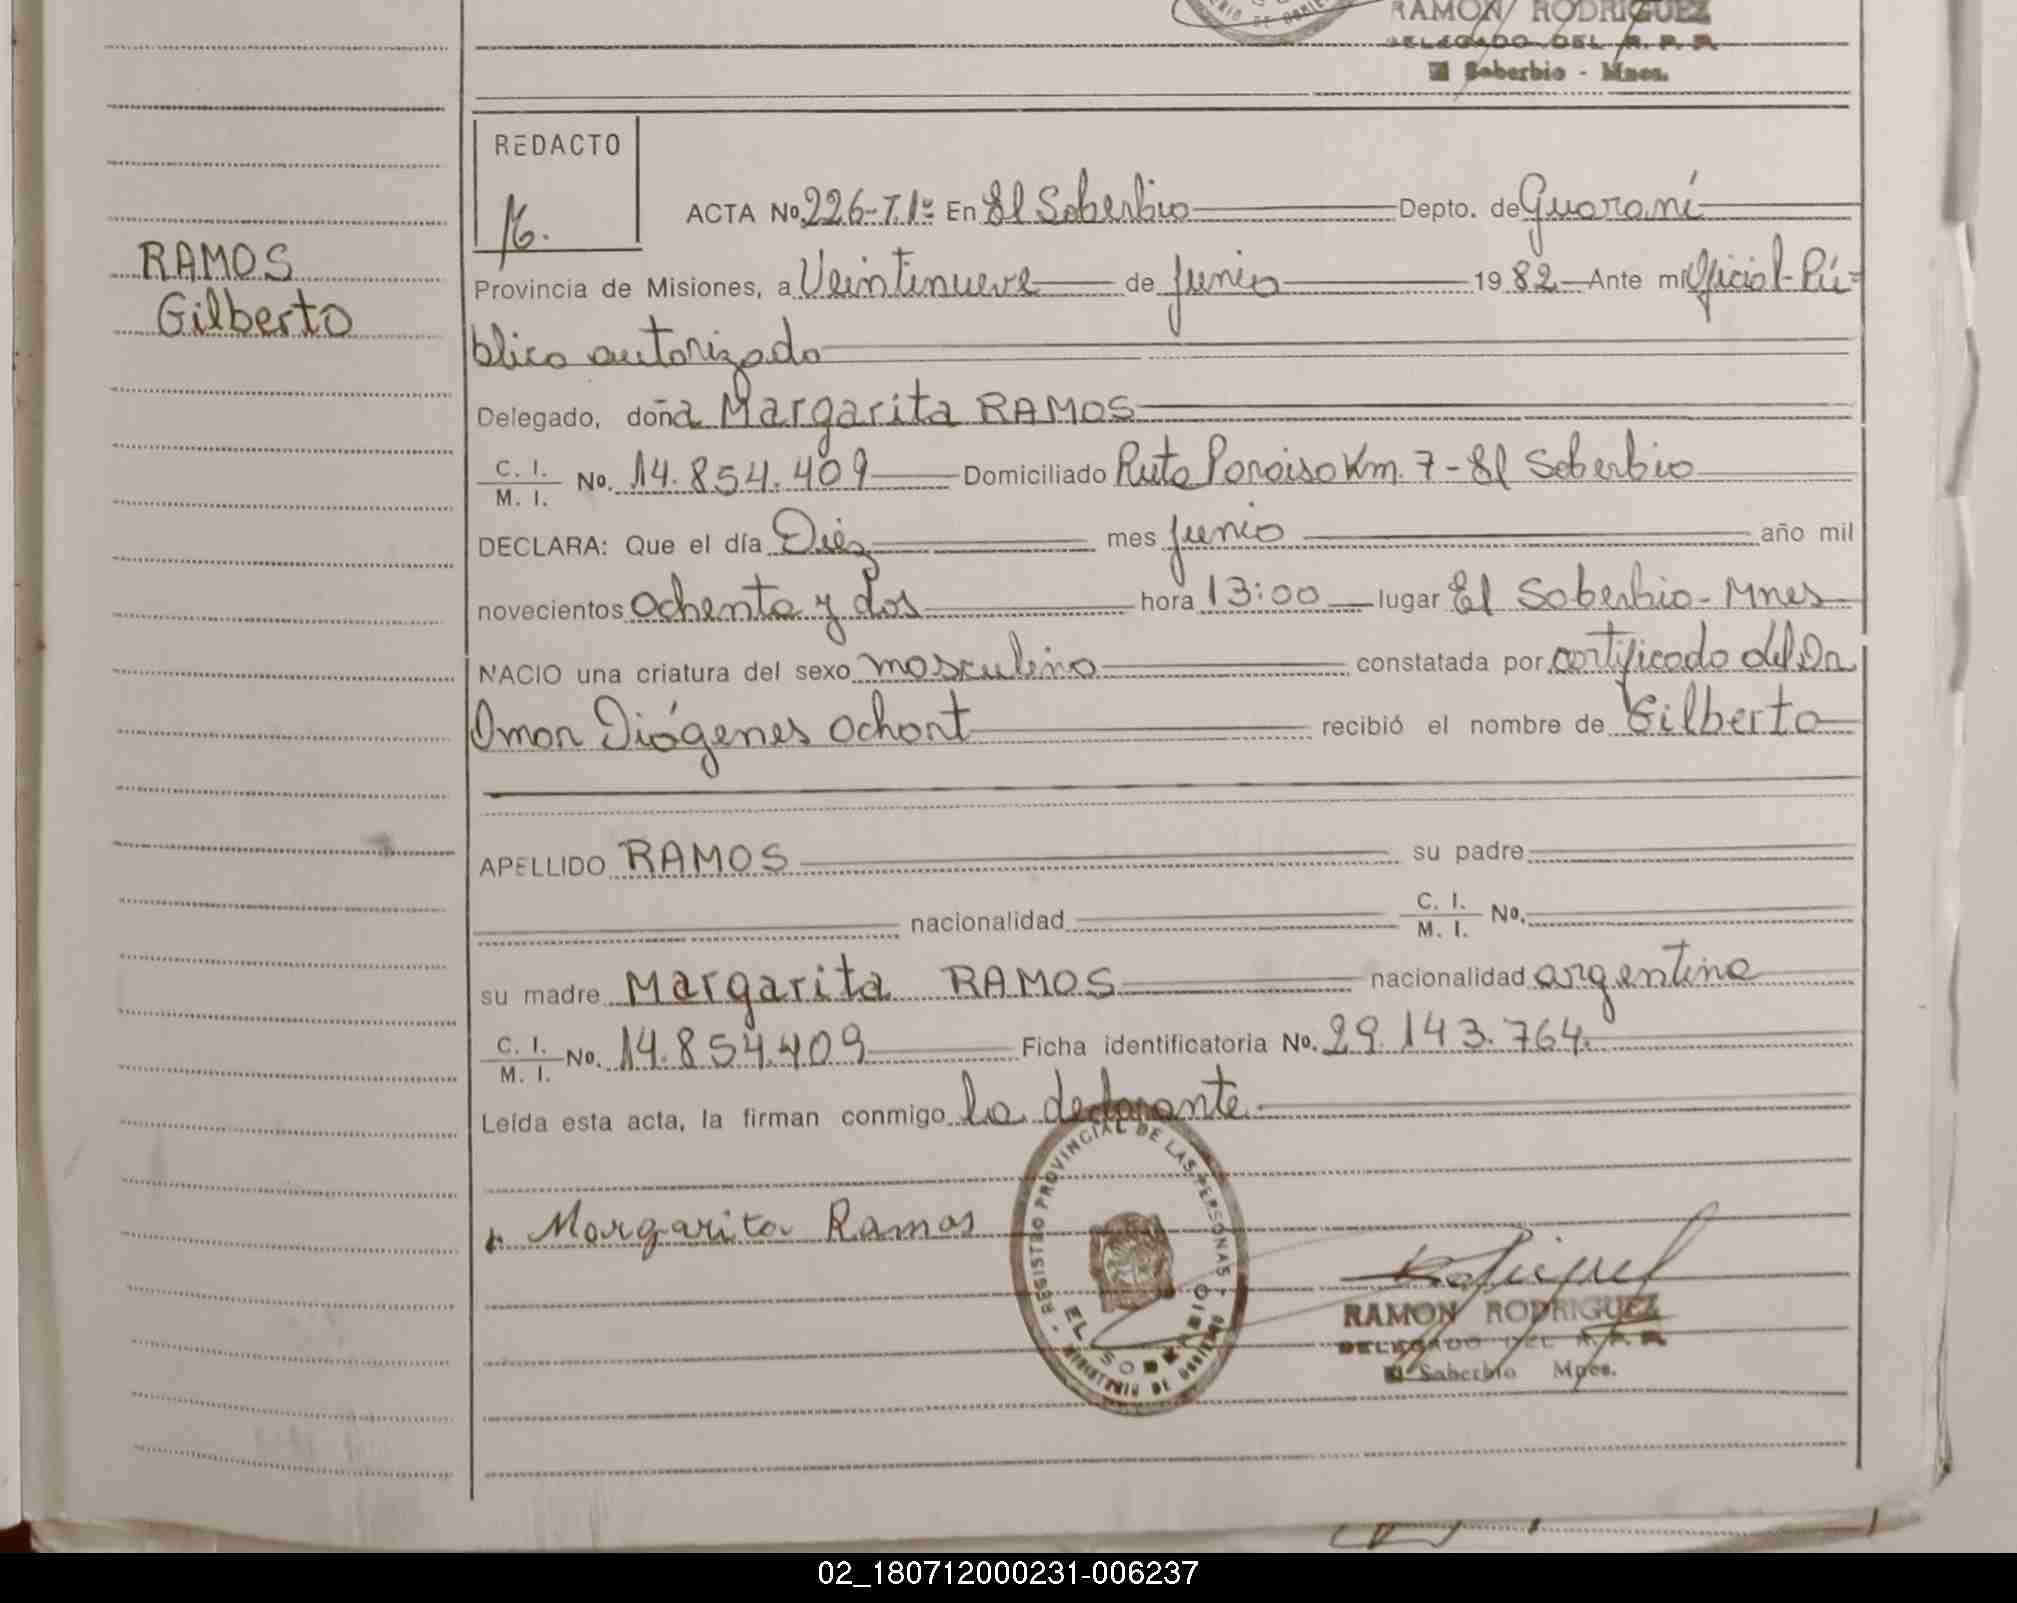 RAMON RODRIGUEZ
DELEGADO DEL R. P. P.
El Soberbio - Mnes.
REDACTO
ACTA No. 226-T.1º En El Soberbio Depto. de Guaraní
RAMOS
Gilberto
Provincia de Misiones, a Veintinueve de junio 1982 Ante mi Oficial Pú-
blico autorizado
Delegado, doña Margarita RAMOS
C. I.
M. I. No. 14.854.409 Domiciliado Ruta Paraiso Km. 7 - El Soberbio
DECLARA: Que el día Diéz mes junio año mil
novecientos ochenta y dos hora 13:00 lugar El Soberbio - Mnes
NACIO una criatura del sexo masculino constatada por certificado del Dr
Omar Diógenes Ochart recibió el nombre de Gilberto
APELLIDO RAMOS su padre
nacionalidad C. I.
M. I. No.
su madre Margarita RAMOS nacionalidad argentina
C. I.
M. I. No. 14.854.409 Ficha identificatoria No. 29.143.764.
Leída esta acta, la firman conmigo la declarante.
Margarita Ramos
- REGISTRO PROVINCIAL DE LAS PERSONAS -
EL SOBERBIO
MINISTERIO DE GOBIERNO
RAMON RODRIGUEZ
DELEGADO DEL R. P. P.
El Soberbio Mnes.
02_180712000231-006237